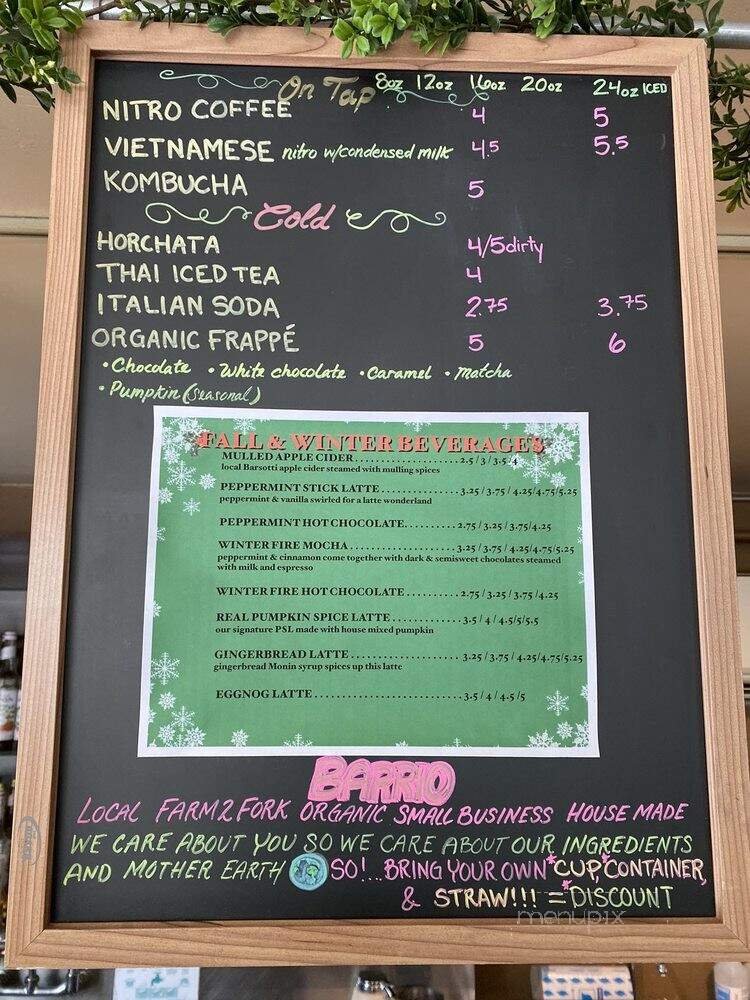 On Tap 8oz 12oz 16oz 20oz 24oz ICED
NITRO COFFEE 4 5
VIETNAMESE nitro w/condensed milk 4.5 5.5
KOMBUCHA 5
Cold
HORCHATA 4/5dirty
THAI ICED TEA 4
ITALIAN SODA 2.75 3.75
ORGANIC FRAPPÉ 5 6
• Chocolate • White chocolate • Caramel • Matcha
• Pumpkin (seasonal)
FALL & WINTER BEVERAGES
MULLED APPLE CIDER.....................2.5 / 3 / 3.5 /4
local Barsotti apple cider steamed with mulling spices
PEPPERMINT STICK LATTE ................3.25/3.75 / 4.25/4.75/5.25
peppermint & vanilla swirled for a latte wonderland
PEPPERMINT HOT CHOCOLATE..........2.75 / 3.25 / 3.75/4.25
WINTER FIRE MOCHA......................3.25/ 3.75 / 4.25/4.75/5.25
peppermint & cinnamon come together with dark & semisweet chocolates steamed
with milk and espresso
WINTER FIRE HOT CHOCOLATE ..........2.75 / 3.25 / 3.75 /4.25
REAL PUMPKIN SPICE LATTE .............3.5 / 4 / 4.5/5/5.5
our signature PSL made with house mixed pumpkin
GINGERBREAD LATTE .....................3.25 /3.75 / 4.25/4.75/5.25
gingerbread Monin syrup spices up this latte
EGGNOG LATTE............................3.5 / 4 / 4.5 /5
BARRIO
LOCAL FARM2FORK ORGANIC SMALL BUSINESS HOUSE MADE
WE CARE ABOUT YOU SO WE CARE ABOUT OUR INGREDIENTS
AND MOTHER EARTH SO!...BRING YOUR OWN *CUP,*CONTAINER,
& STRAW!!! =*DISCOUNT
menupix